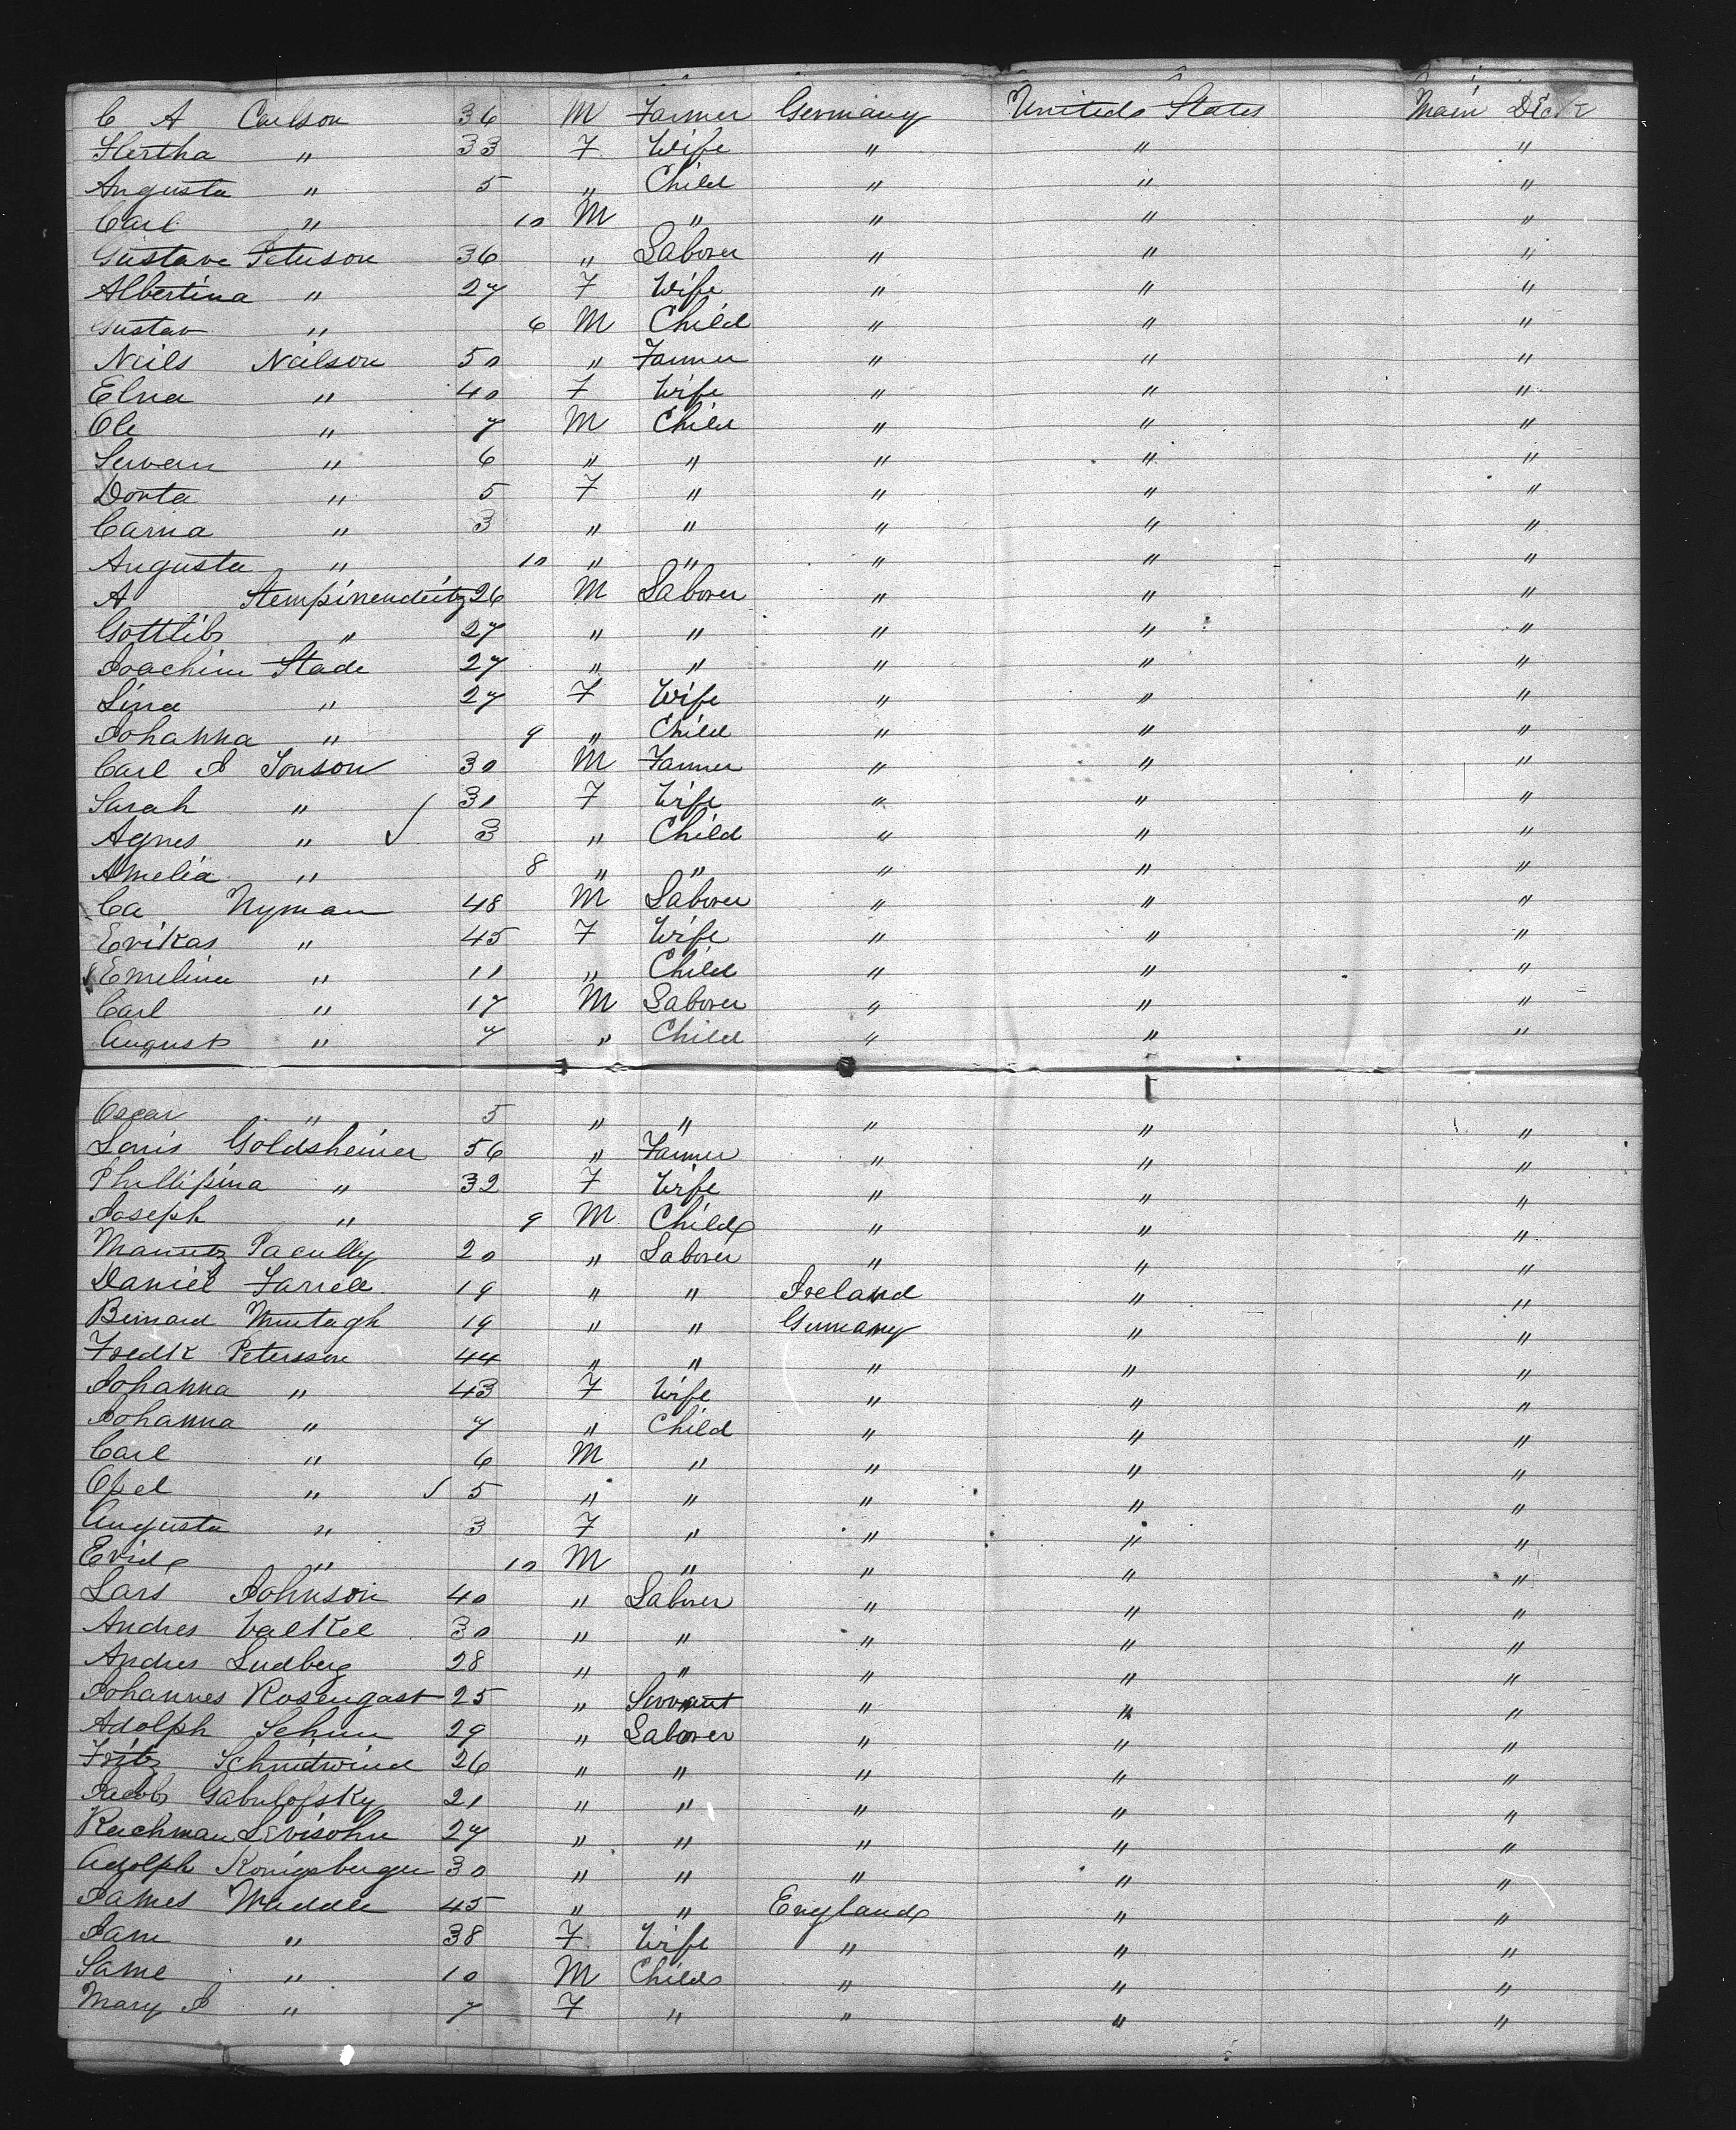 C A Carlson 36 M Farmer Germany United States Main Deck
Hertha " 33 F Wife " " "
Augusta " 5 " Child " " "
Carl " 10 M " " " "
Gustave Peterson 36 " Laborer " " "
Albertina " 27 F Wife " " "
Gustav " 6 M Child " " "
Neils Neilson 50 " Farmer " " "
Elna " 40 F Wife " " "
Ole " 7 M Child " " "
" 6 " " " " "
Dorta " 5 F " " " "
Carna " 3 " " " " "
Augusta " 10 " " " " "
A 26 M Laborer " " "
Gottlib " 27 " " " " "
Joachim Stade 27 " " " " "
Lina " 27 F Wife " " "
Johanna " 9 " Child " " "
Carl J Jonson 30 M Farmer " " "
Sarah " 31 F Wife " " "
Agnes " 3 " Child " " "
Amelia " 8 " " " " "
Ca Nyman 48 M Laborer " " "
Erikas " 45 F Wife " " "
Emelina " 11 " Child " " "
Carl " 17 M Laborer " " "
August " 7 " Child " " "
Oscar " 5 " " " " "
Louis Goldsheiner 56 " Farmer " " "
Phillipina " 32 F Wife " " "
Joseph " 9 M Child " " "
Pacully 20 " Laborer " " "
Daniel Farrell 19 " " Ireland " "
Bernard Murtagh 19 " " Germany " "
Fredk Petersson 44 " " " " "
Johanna " 43 F Wife " " "
Johanna " 7 " Child " " "
Carl " 6 M " " " "
Opel " 5 " " " " "
Augusta " 3 F " " " "
" 10 M " " " "
Lars Johnson 40 " Laborer " " "
Andres Valkel 30 " " " " "
Andres Ludberg 28 " " " " "
Johannes Rosengast 25 " Servant " " "
Adolph 29 " Laborer " " "
Fritz Schnidwind 26 " " " " "
Jacob Gabulofsky 21 " " " " "
Levisohn 27 " " " " "
Adolph Konigsberger 30 " " " " "
James Weddle 45 " " England " "
Jane " 38 F Wife " " "
" 10 M Child " " "
Mary J " 7 F " " " "